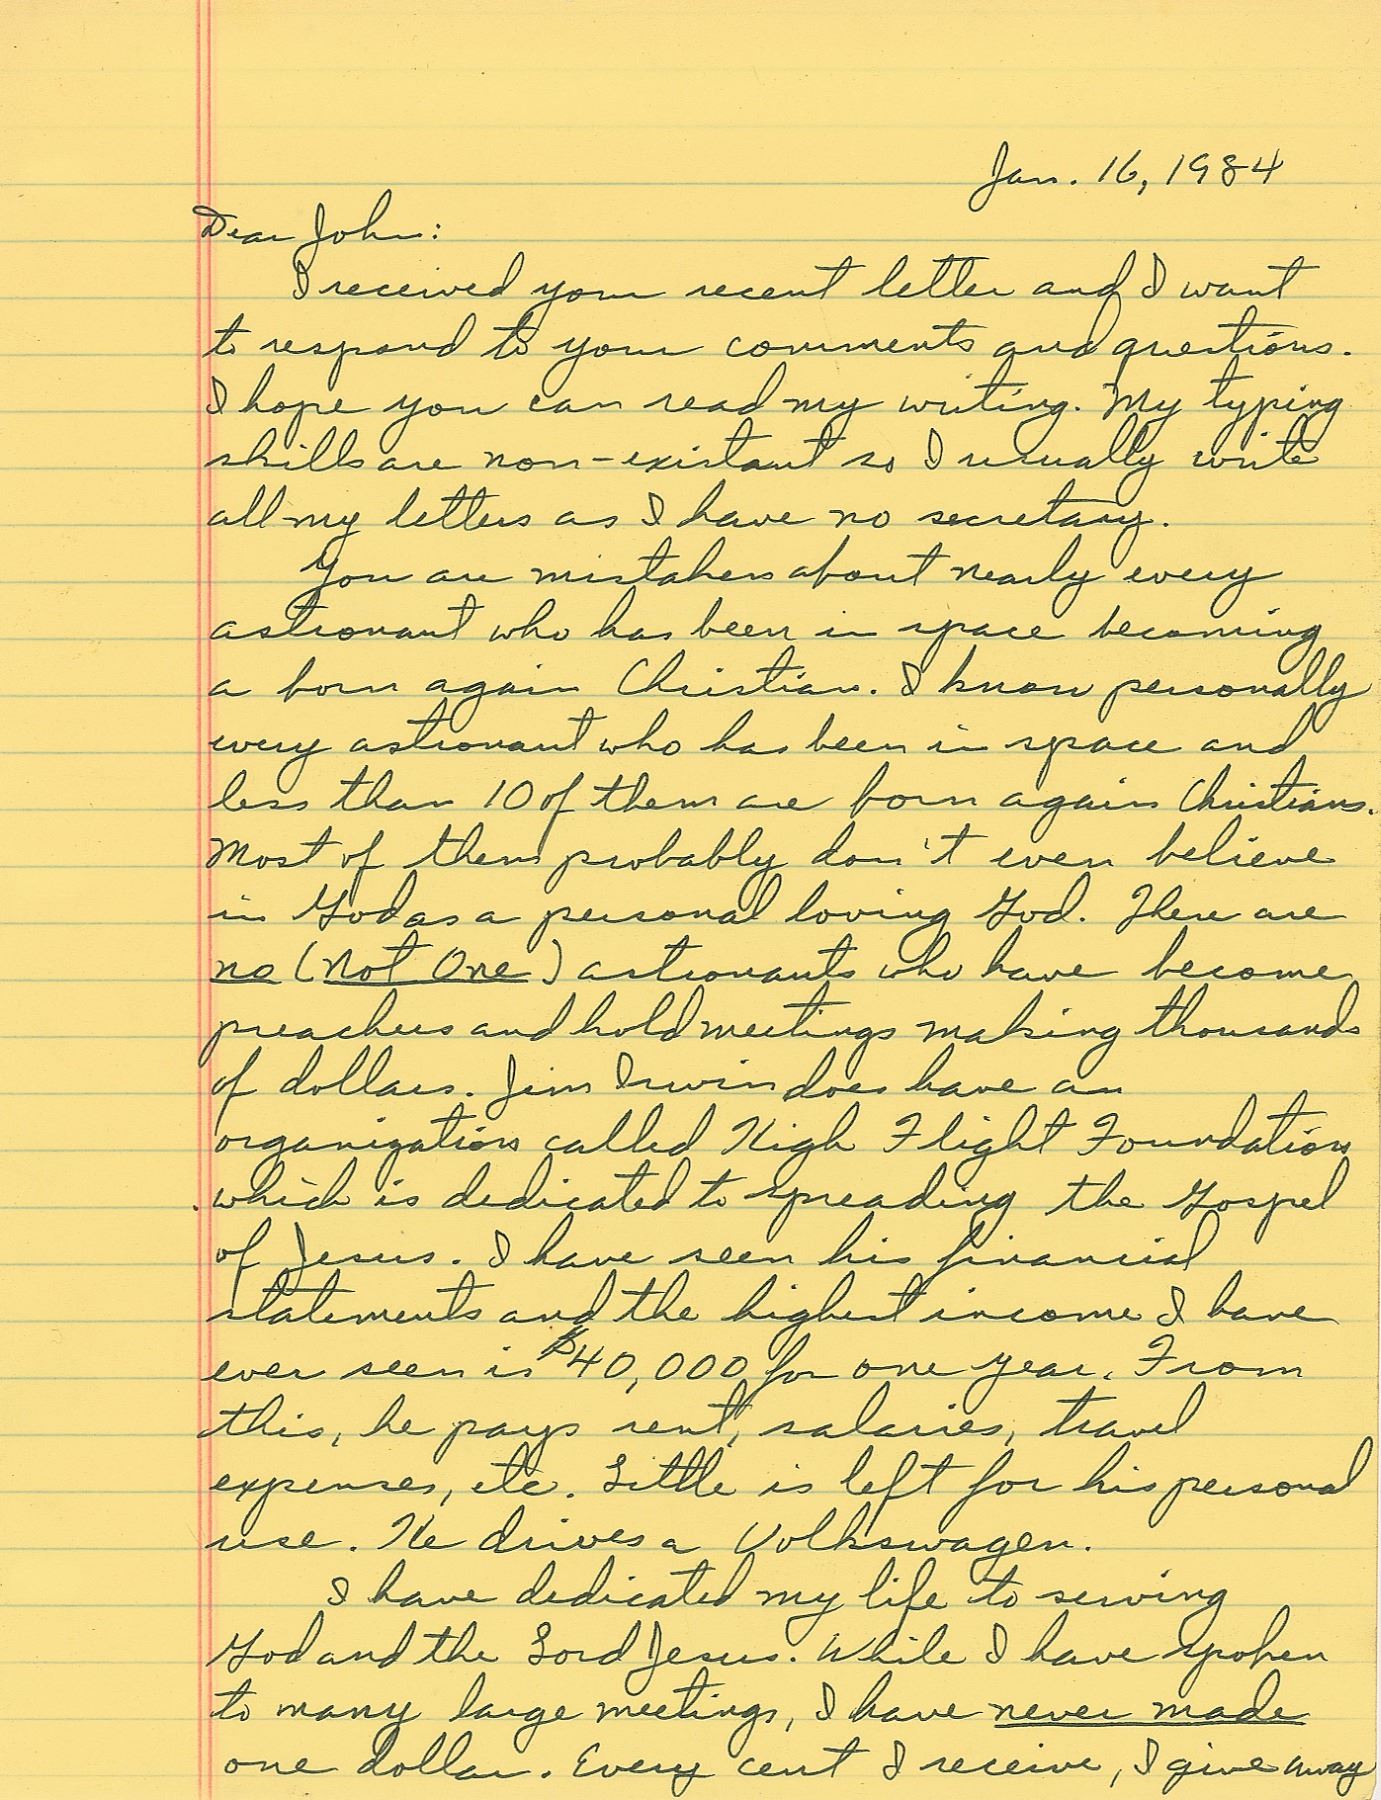 Jan. 16, 1984
Dear John:
I received your recent letter and I want
to respond to your comments and questions.
I hope you can read my writing. My typing
skills are non-existant so I usually write
all my letters as I have no secretary.
You are mistaken about nearly every
astronaut who has been in space becoming
a born again Christian. I know personally
every astronaut who has been in space and
less than 10 of them are born again Christians.
Most of them probably don't even believe
in God as a personal loving God. There are
no (Not One) astronauts who have become
preachers and hold meetings making thousands
of dollars. Jim Irwin does have an
organization called High Flight Foundation
which is dedicated to spreading the Gospel
of Jesus. I have seen his financial
statements and the highest income I have
ever seen is $40,000 for one year. From
this, he pays rent, salaries, travel
expenses, etc. Little is left for his personal
use. He drives a Volkswagen.
I have dedicated my life to serving
God and the Lord Jesus. While I have spoken
to many large meetings, I have never made
one dollar. Every cent I receive, I give away